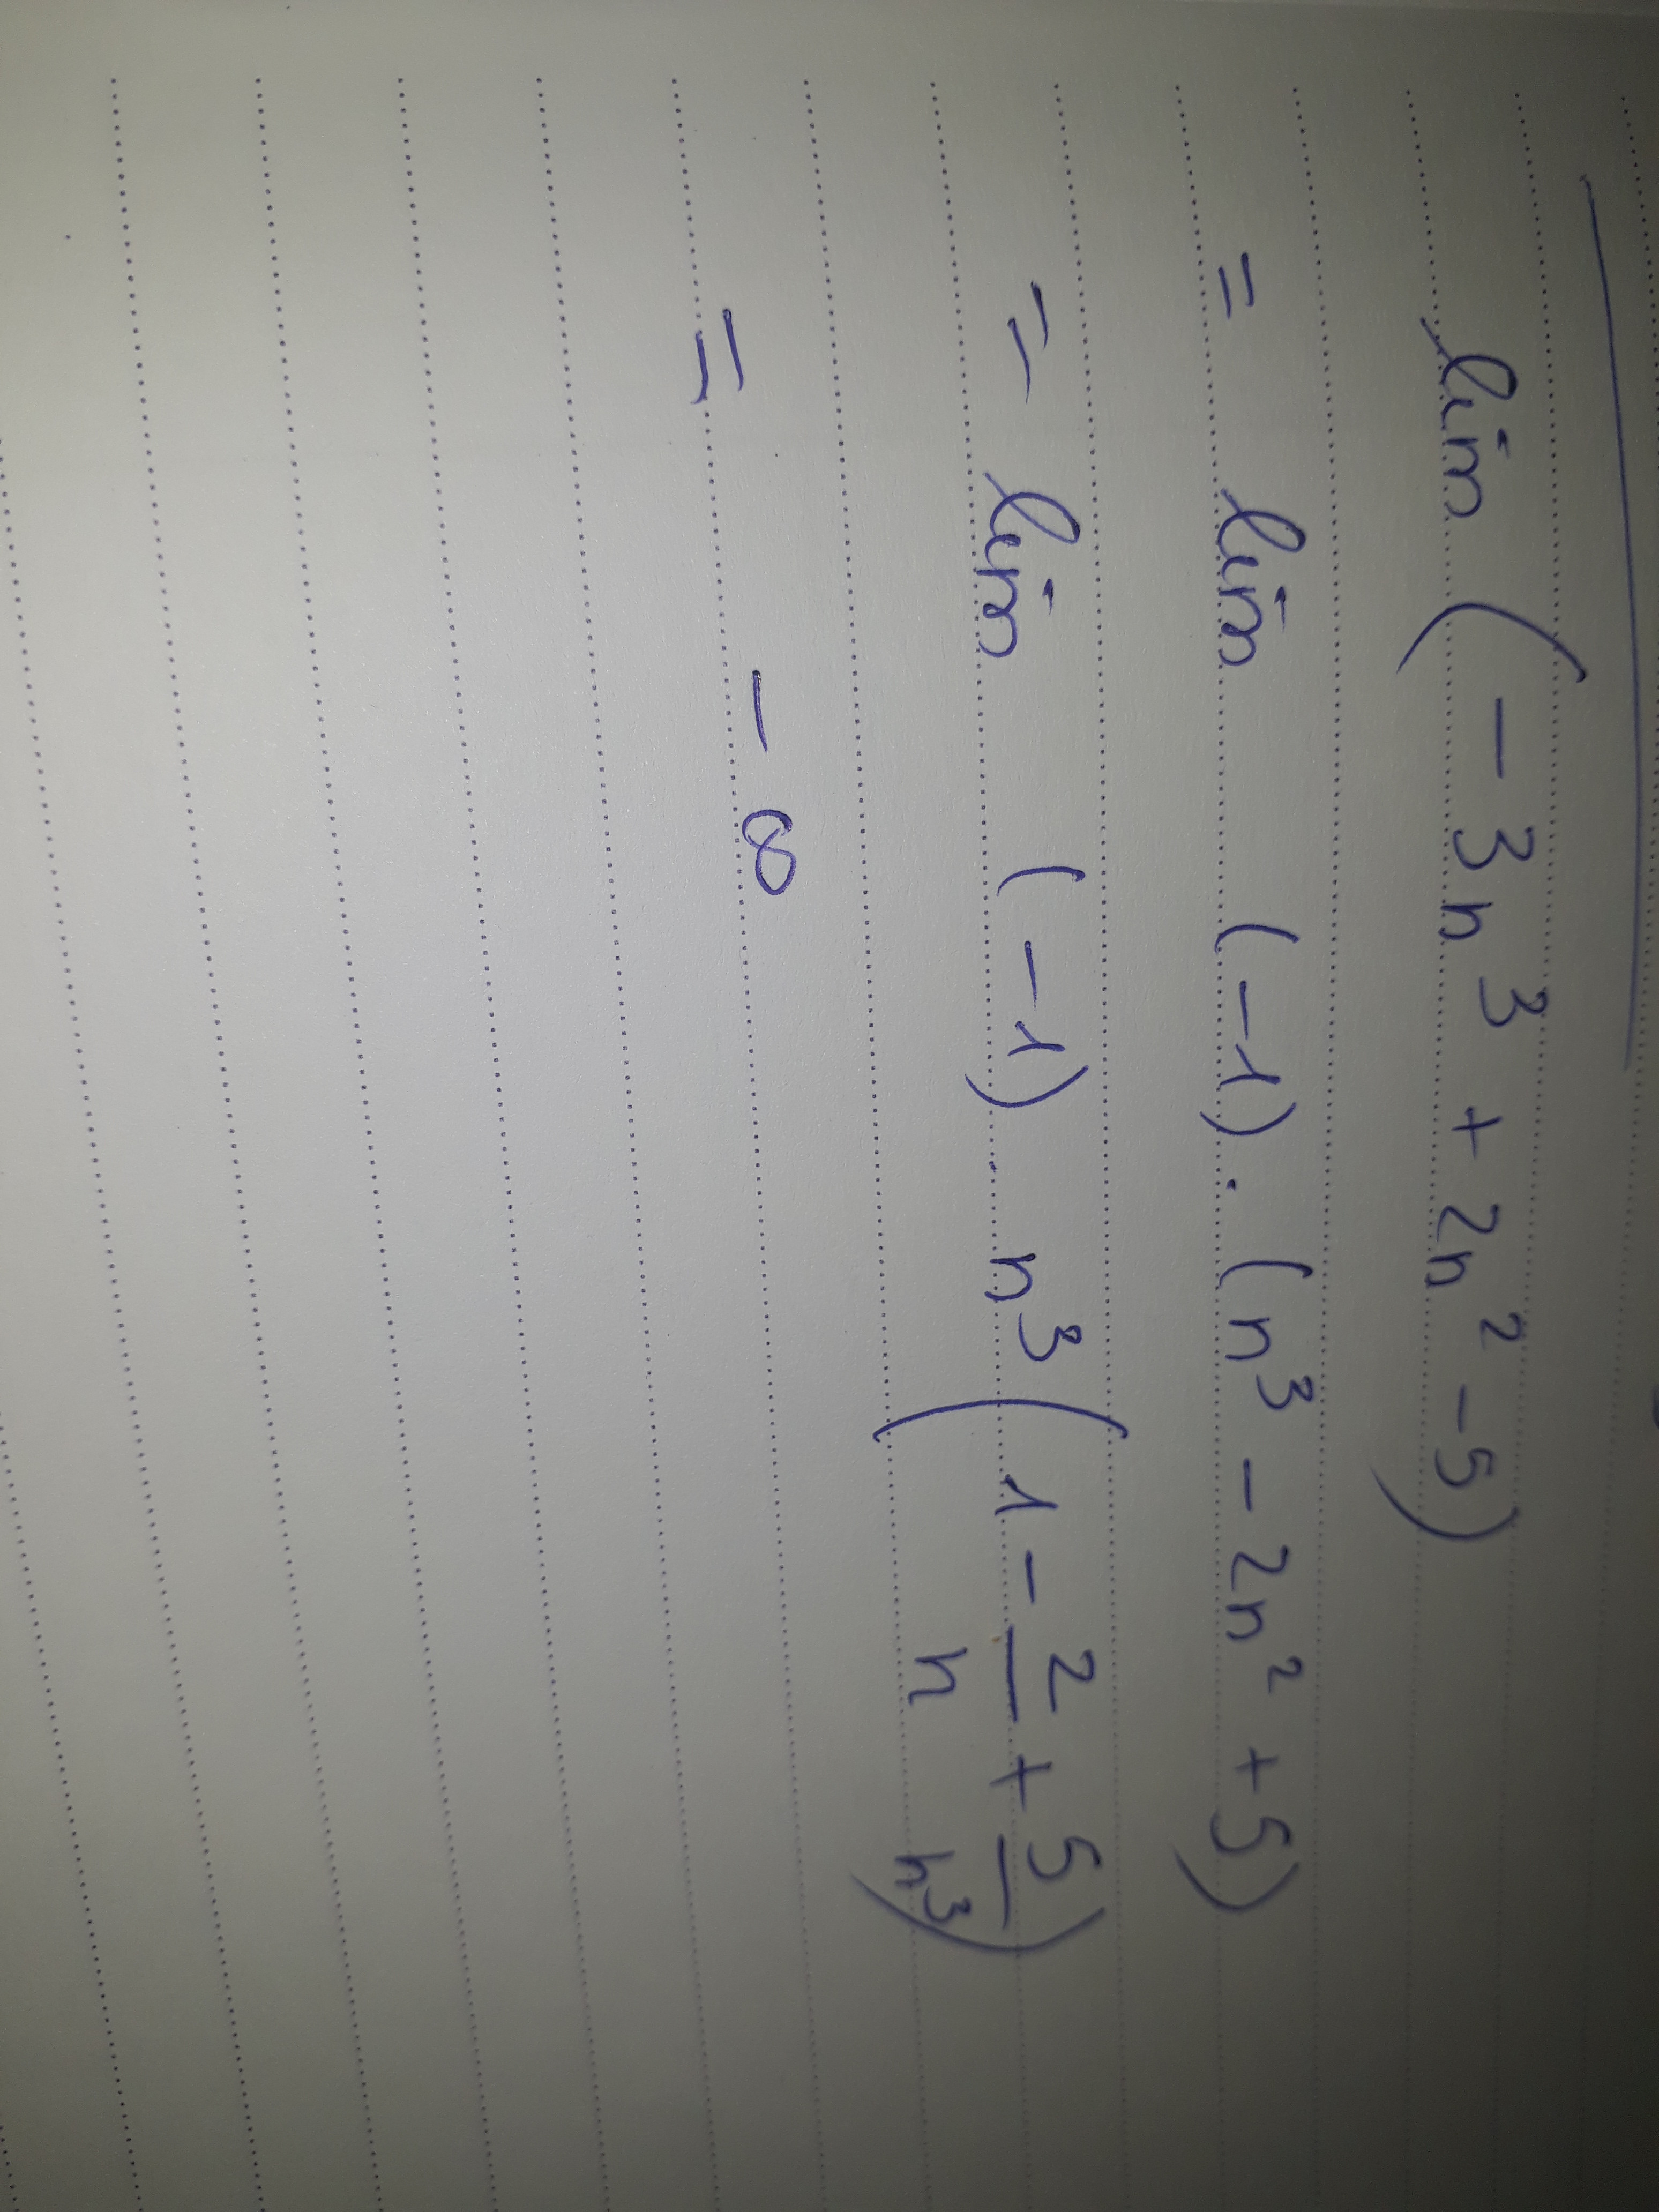 lim (-3n³ + 2n² - 5)
= lim (-1). (n³ - 2n² + 5)
= lim (-1). n³ (1 - 2/n + 5/n³)
= -∞